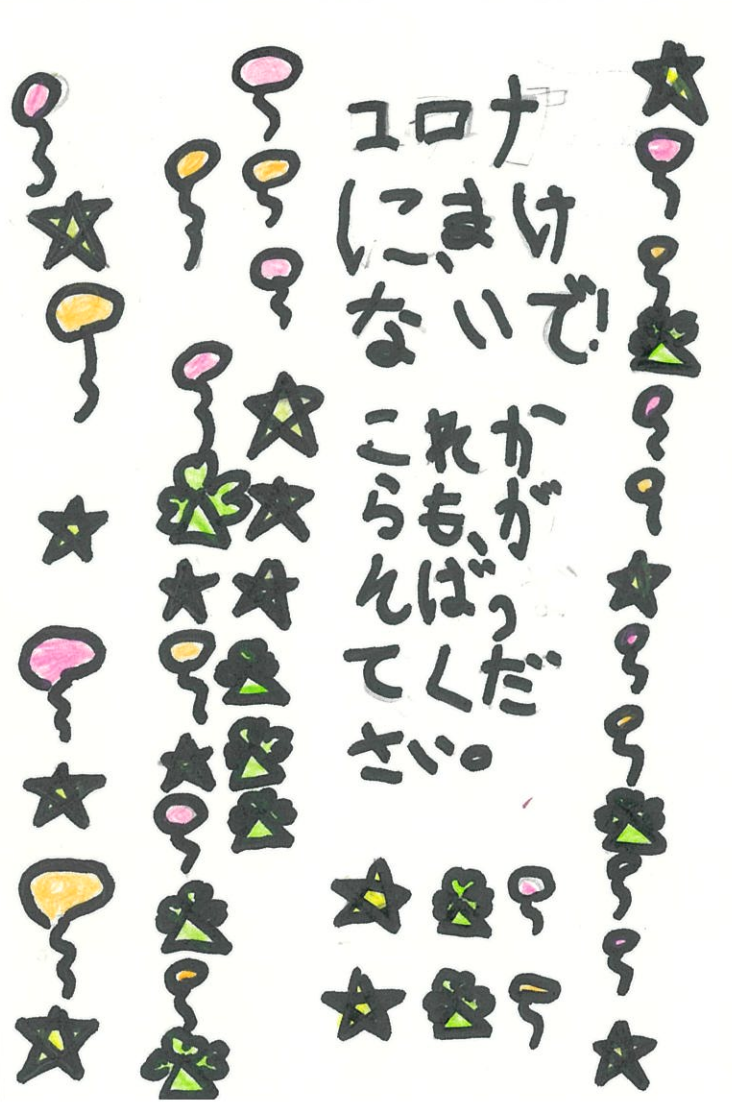 コロナ
にまけ
ないで!
これか
らもが
んばっ
てくだ
さい。